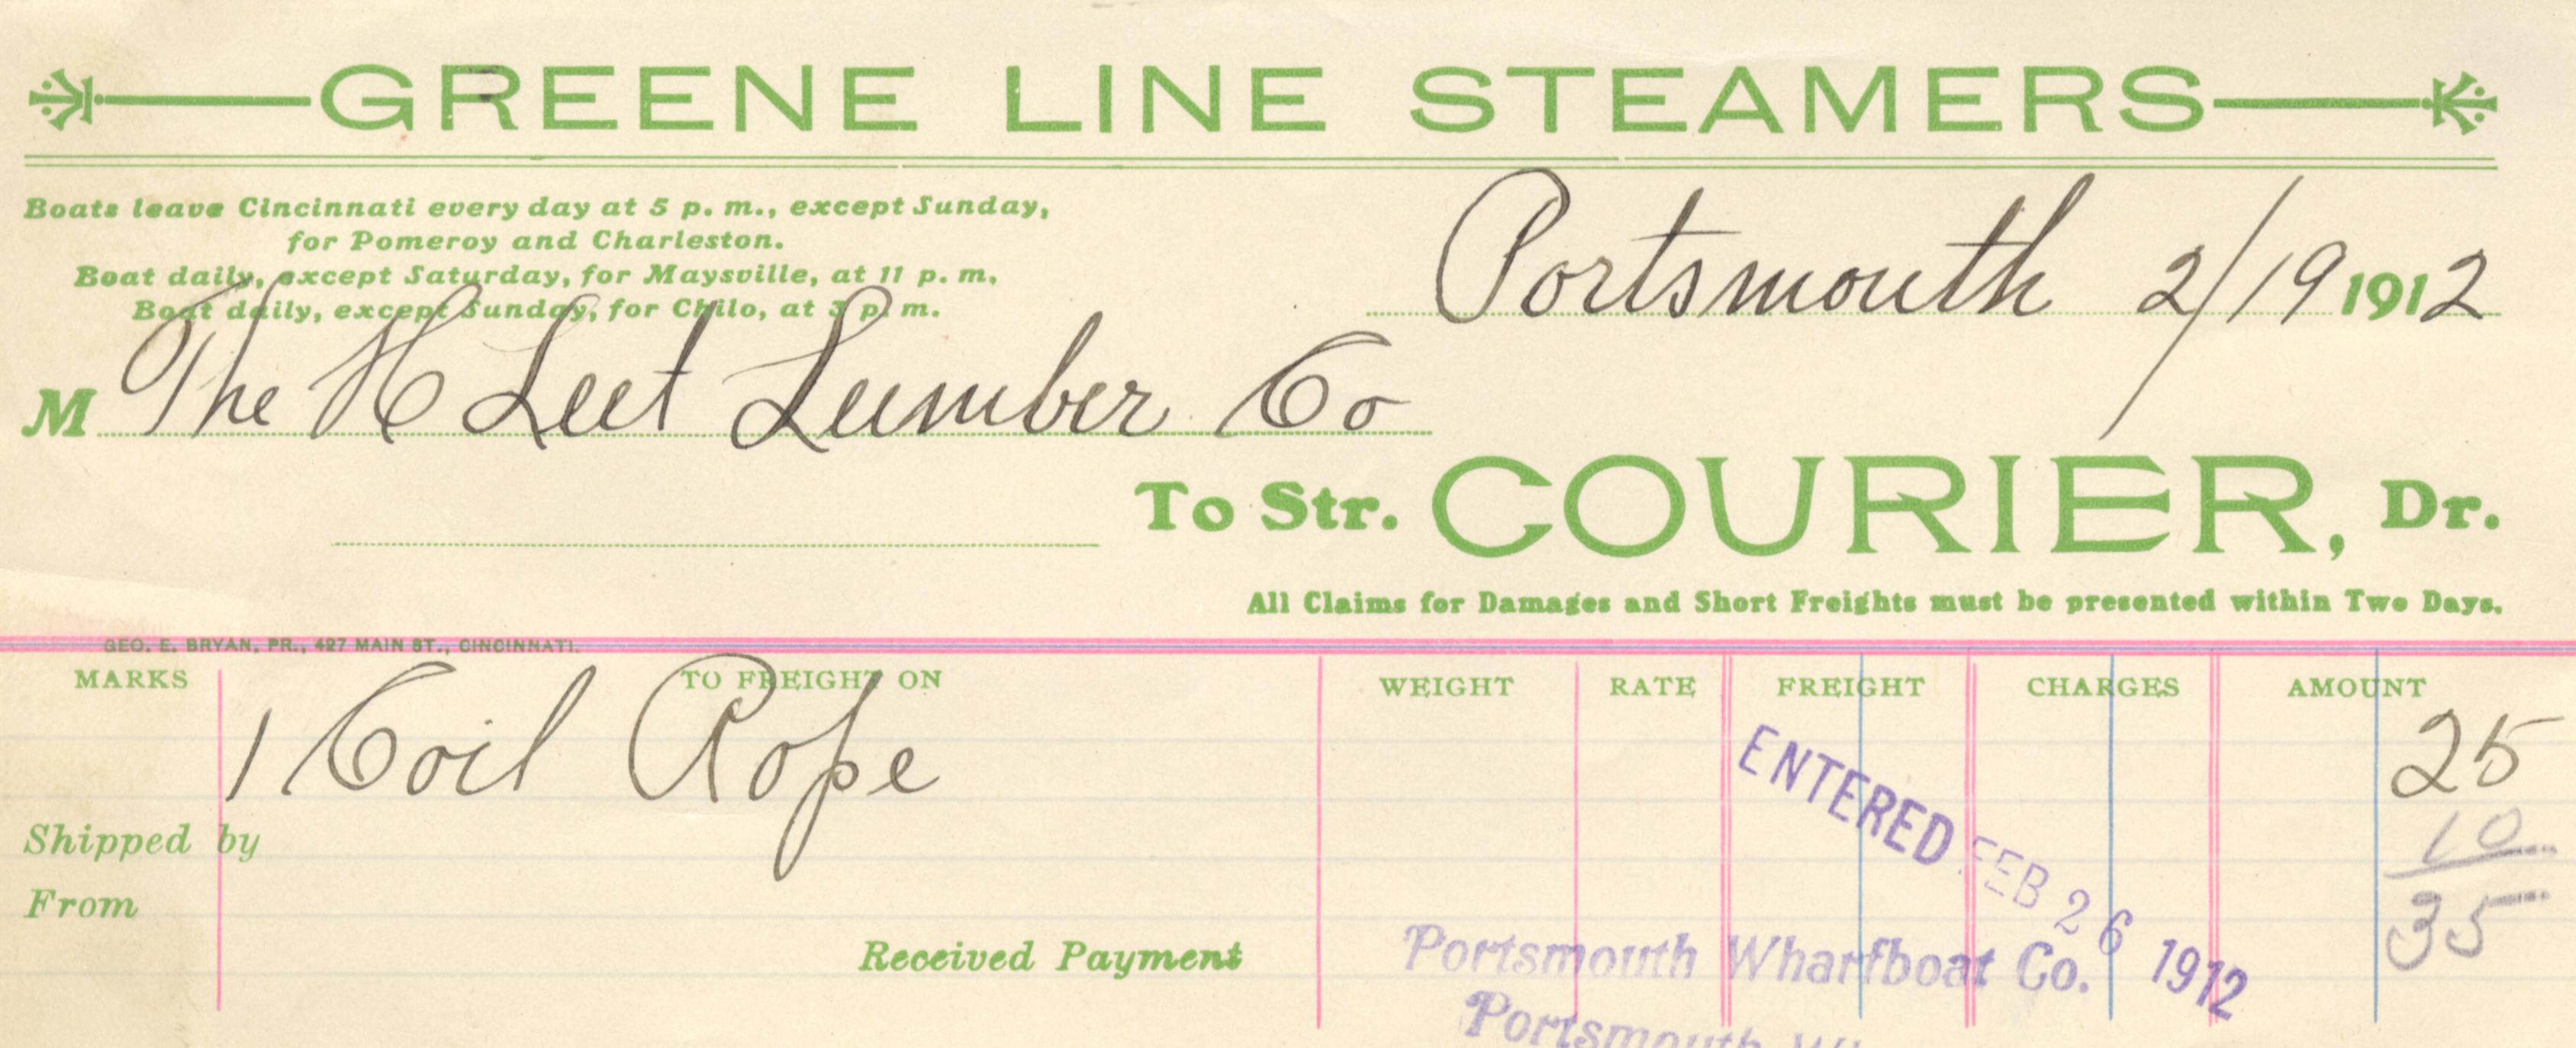 GREENE LINE STEAMERS
Boats leave Cincinnati every day at 5 p. m., except Sunday,
for Pomeroy and Charleston.
Boat daily, except Saturday, for Maysville, at 11 p. m,
Boat daily, except Sunday, for Chilo, at 3 p. m.
Portsmouth 2/19 1912
M The H Leet Lumber Co
To Str. COURIER, Dr.
All Claims for Damages and Short Freights must be presented within Two Days.
GEO. E. BRYAN, PR., 427 MAIN ST., CINCINNATI.
MARKS TO FREIGHT ON WEIGHT RATE FREIGHT CHARGES AMOUNT
1 Coil Rope 25
Shipped by 10
From 35
ENTERED FEB 26 1912
Received Payment Portsmouth Wharfboat Co.
Portsmouth